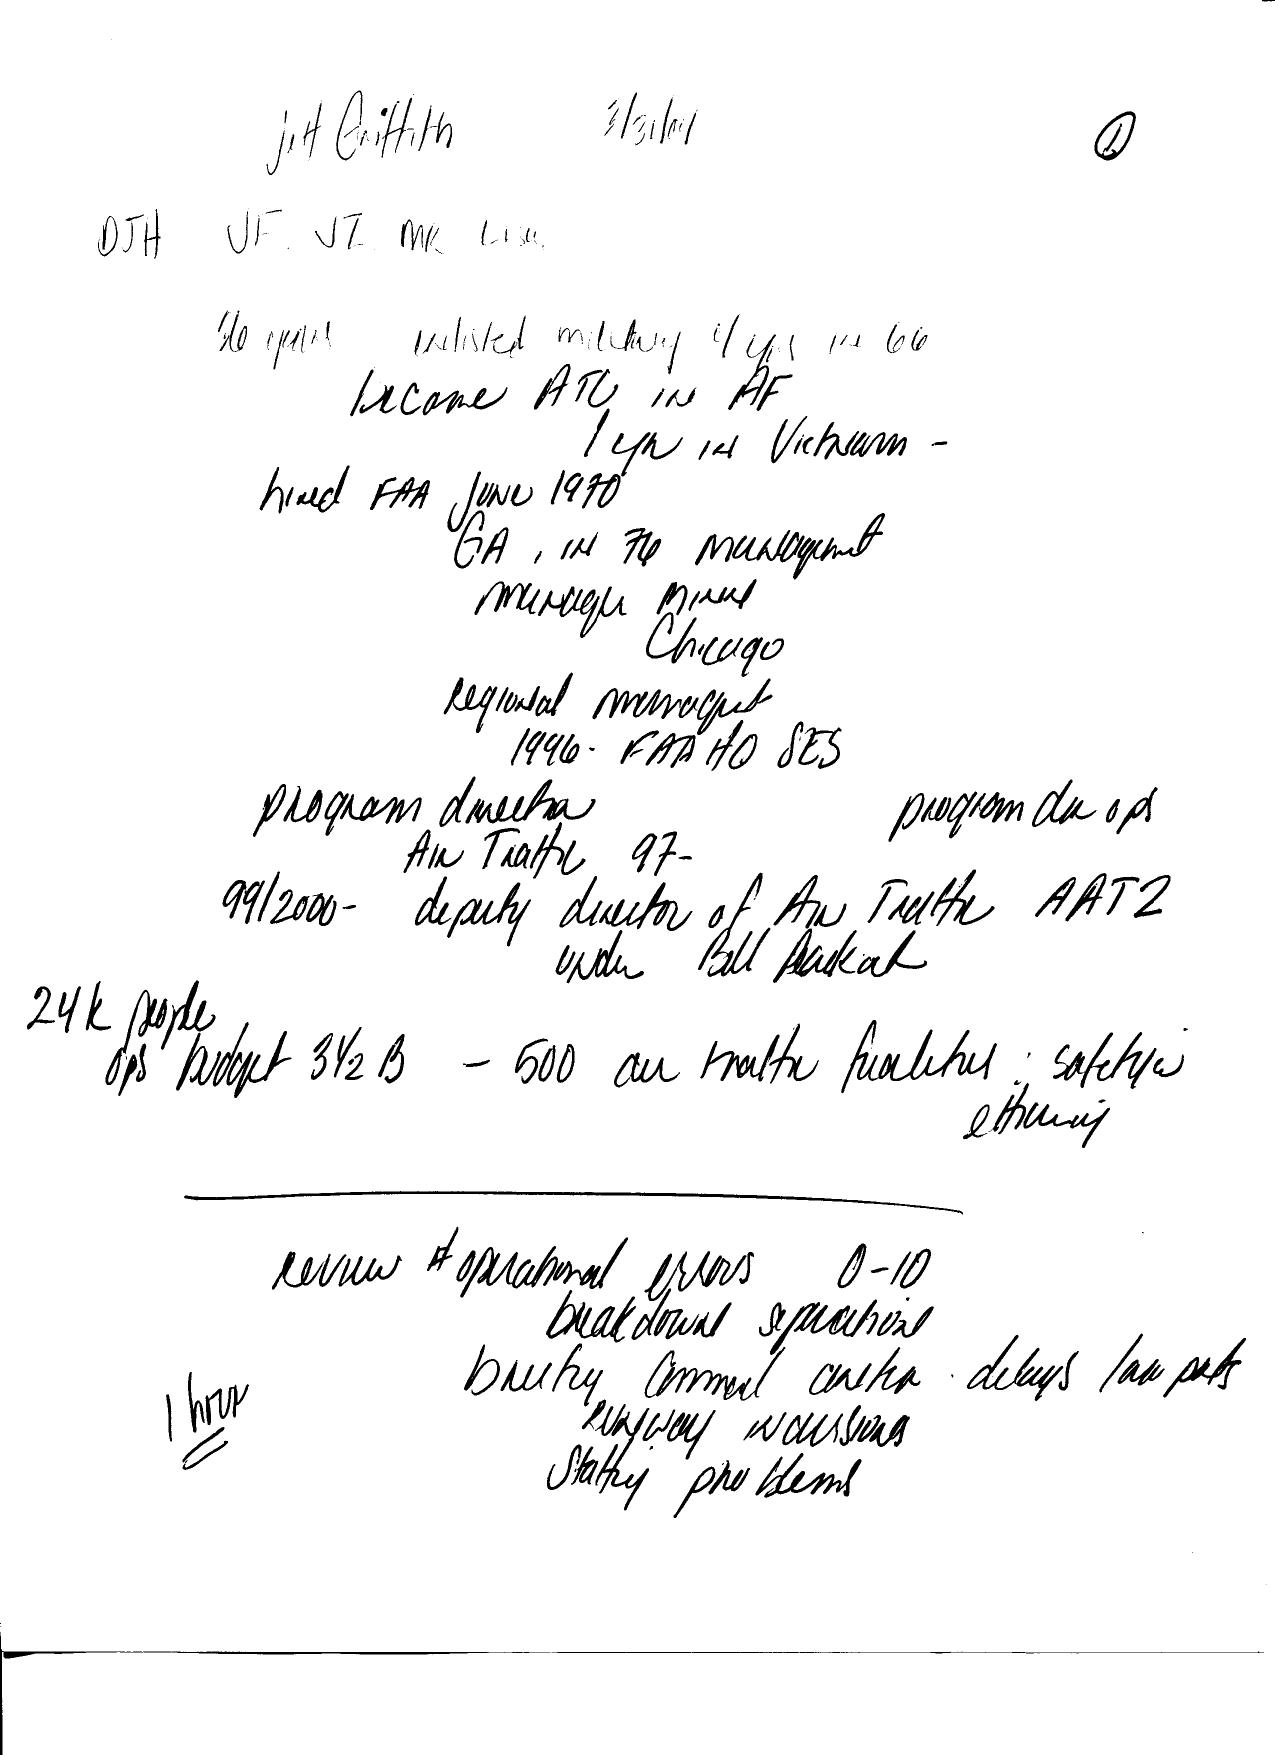 Jeff Griffith 3/31/04 ①
DJH JF. JZ. MR Lisa.
36 years enlisted military 4 yrs in 66
become ATC in AF
1 yr in Vietnam -
hired FAA June 1970
GA, in 76 management
manager
Chicago
regional management
1996 - FAA HQ SES
program director program dir ops
Air Traffic 97-
99/2000 - deputy director of Air Traffic AAT2
under Bill
24k people
ops budget 3½ B - 500 air traffic facilities : safety
review # operational errors 0-10
breakdown separation
briefing Command center . delays
runway incursions
1 hour
Staffing problems